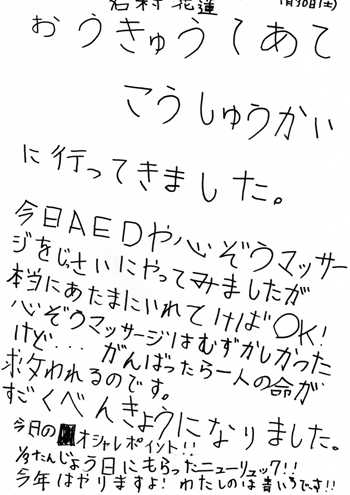 岩村 花蓮 1月30日(土)
おうきゅうてあて
こうしゅうかい
に行ってきました。
今日AEDや心ぞうマッサー
ジをじっさいにやってみましたが
本当にあたまにいれてけばOK!
心ぞうマッサージはむずかしかった
けど... がんばったら一人の命が
救われるのです。
すごくべんきょうになりました。
今日のオシャレポイント!!
1/9たんじょう日にもらったニューリュック!!
今年はやりますよ! わたしのは青いろです!!